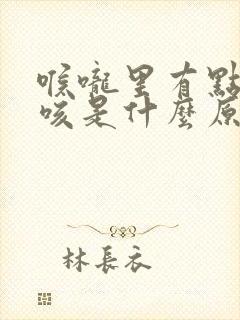 喉嚨里有點
咳是什麼原
林長衣